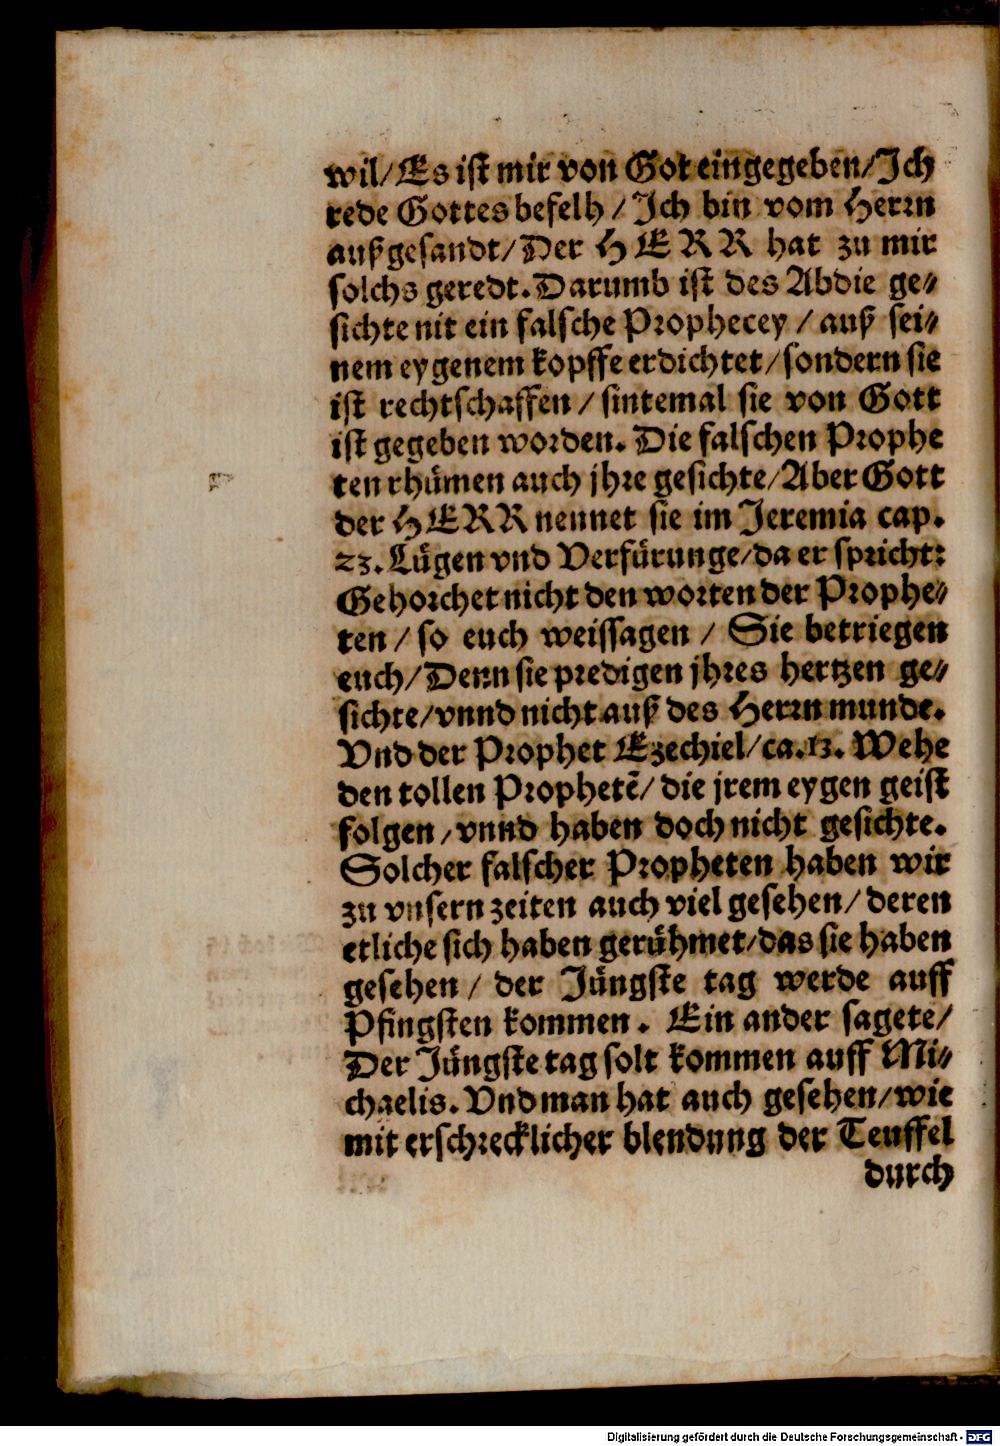 wil/ Es ist mir von Got eingegeben/ Ich
rede Gottes befelh / Ich bin vom Herrn
außgesandt/ Der HERR hat zu mir
solchs geredt. Darumb ist des Abdie ge-
sichte nit ein falsche Prophecey / auß sei-
nem eygenem kopffe erdichtet/ sondern sie
ist rechtschaffen / sintemal sie von Gott
ist gegeben worden. Die falschen Prophe
ten rhümen auch jhre gesichte/ Aber Gott
der HERR nennet sie im Jeremia cap.
23. Lügen vnd Verfürunge/ da er spricht:
Gehorchet nicht den worten der Prophe-
ten / so euch weissagen / Sie betriegen
euch/ Denn sie predigen jhres hertzen ge-
sichte/ vnnd nicht auß des Herrn munde.
Vnd der Prophet Ezechiel/ ca. 13. Wehe
den tollen Prophetē/ die jrem eygen geist
folgen/ vnnd haben doch nicht gesichte.
Solcher falscher Propheten haben wir
zu vnsern zeiten auch viel gesehen/ deren
etliche sich haben gerühmet/ das sie haben
gesehen / der Jüngste tag werde auff
Pfingsten kommen. Ein ander sagete/
Der Jüngste tag solt kommen auff Mi-
chaelis. Vnd man hat auch gesehen/ wie
mit erschrecklicher blendung der Teuffel
durch
Digitalisierung gefördert durch die Deutsche Forschungsgemeinschaft - DFG